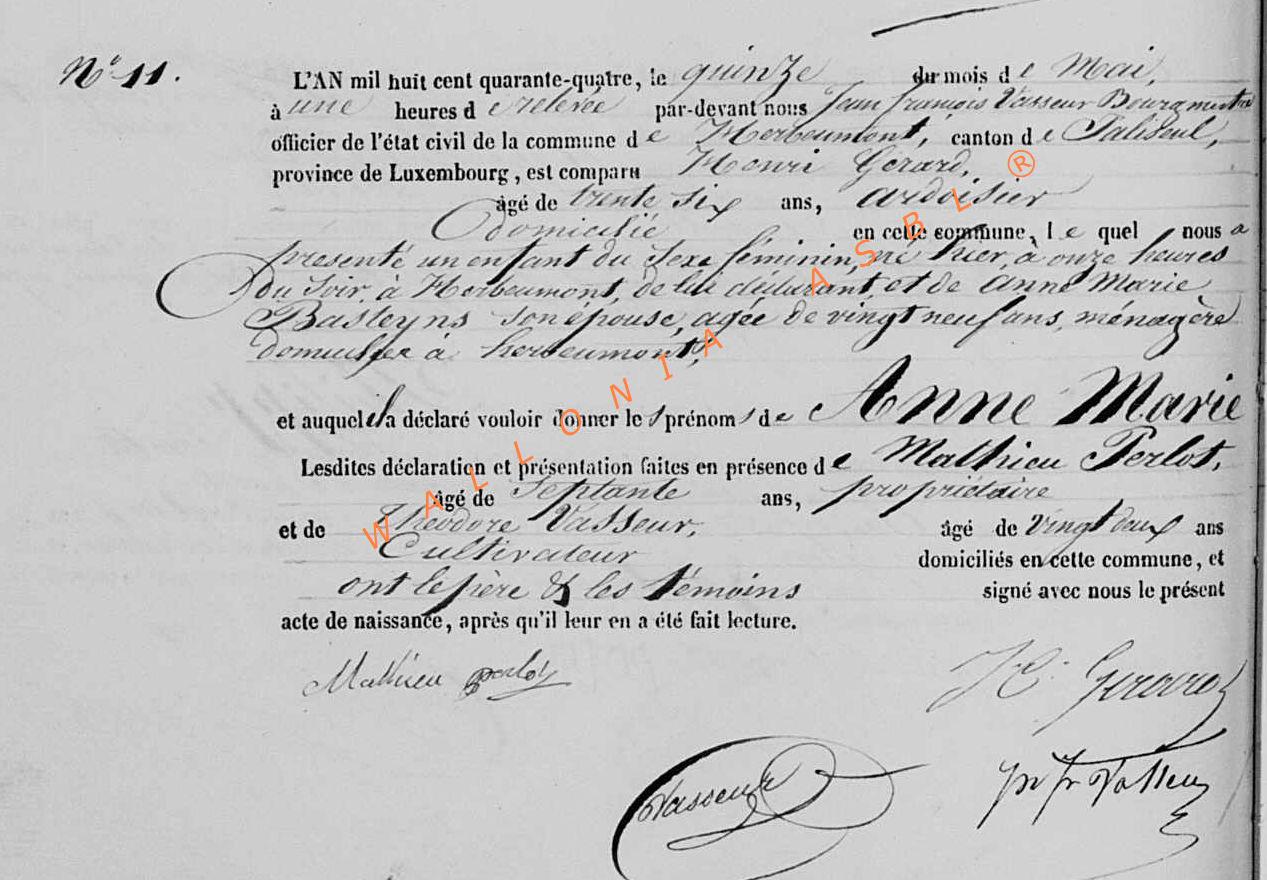 N° 11.
L'AN mil huit cent quarante-quatre, le quinze du mois de Mai,
à une heures de relevée par-devant nous Jean françois Vasseur Bourgmestre
officier de l'état civil de la commune de Herbeumont, canton de Paliseul,
province de Luxembourg, est comparu Henri Gérard,
âgé de trente six ans, ardoisier
domicilié en cette commune, le quel nous a
présenté un enfant du sexe féminin, né hier, à onze heures
du soir, à Herbeumont, de lui déclarant, et de Anne Marie
Basteyns son épouse, agée de vingt neuf ans, ménagère
domiciliée à herbeumont,
et auquel il a déclaré vouloir donner les prénoms de Anne Marie
Lesdites déclaration et présentation faites en présence de Mathieu Perlot,
âgé de septante ans, propriétaire
et de Théodore Vasseur, âgé de vingt deux ans
Cultivateur domiciliés en cette commune, et
ont le père & les témoins signé avec nous le présent
acte de naissance, après qu'il leur en a été fait lecture.
Mathieu perlot H. Gerard
Vasseur Vasseur
WALLONIA ASBL ®